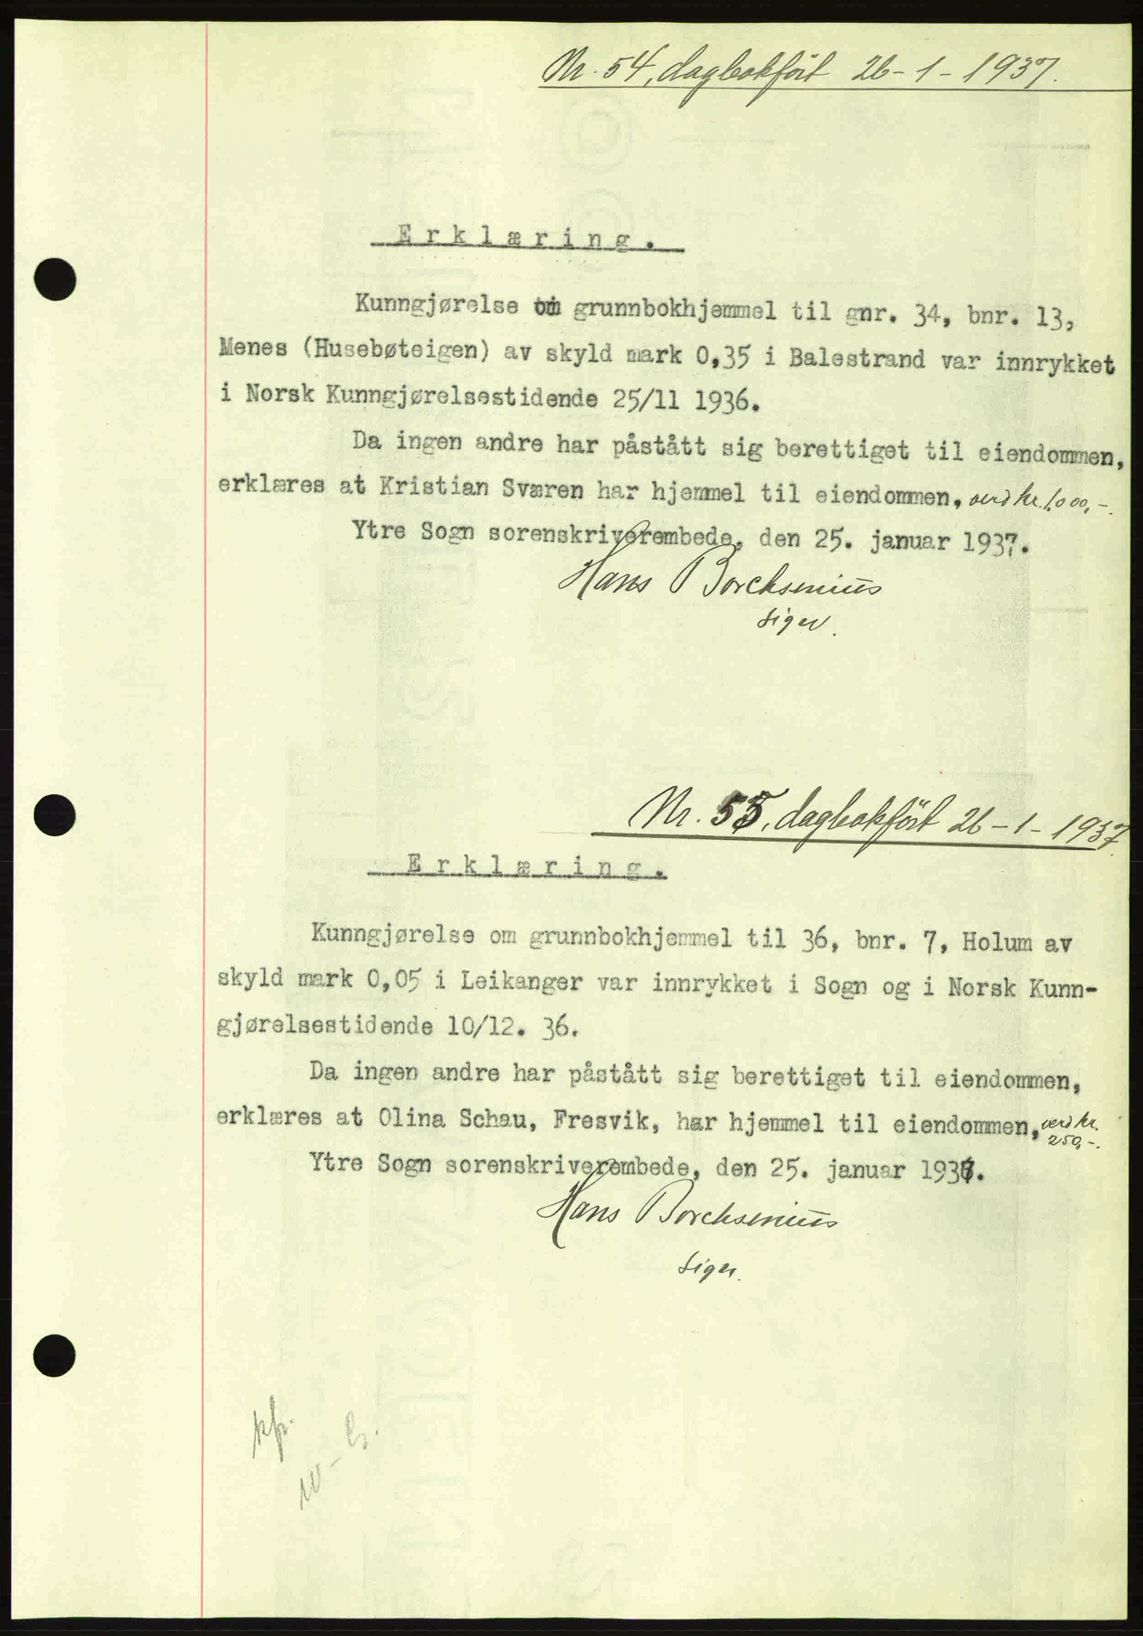 Nr. 54, dagbokført 26-1-1937.
Erklæring.
Kunngjørelse om grunnbokhjemmel til gnr. 34, bnr. 13,
Menes (Husebøteigen) av skyld mark 0,35 i Balestrand var innrykket
i Norsk Kunngjørelsestidende 25/11 1936.
Da ingen andre har påstått sig berettiget til eiendommen,
erklæres at Kristian Sværen har hjemmel til eiendommen, verd kr. 1.000,-.
Ytre Sogn sorenskriverembede, den 25. januar 1937.
Hans Borchsenius
Nr. 55, dagbokført 26-1-1937.
Erklæring.
Kunngjørelse om grunnbokhjemmel til 36, bnr. 7, Holum av
skyld mark 0,05 i Leikanger var innrykket i Sogn og i Norsk Kunn-
gjørelsestidende 10/12. 36.
Da ingen andre har påstått sig berettiget til eiendommen,
erklæres at Olina Schau, Fresvik, har hjemmel til eiendommen, verd kr.
250,-.
Ytre Sogn sorenskriverembede, den 25. januar 1937.
Hans Borchsenius